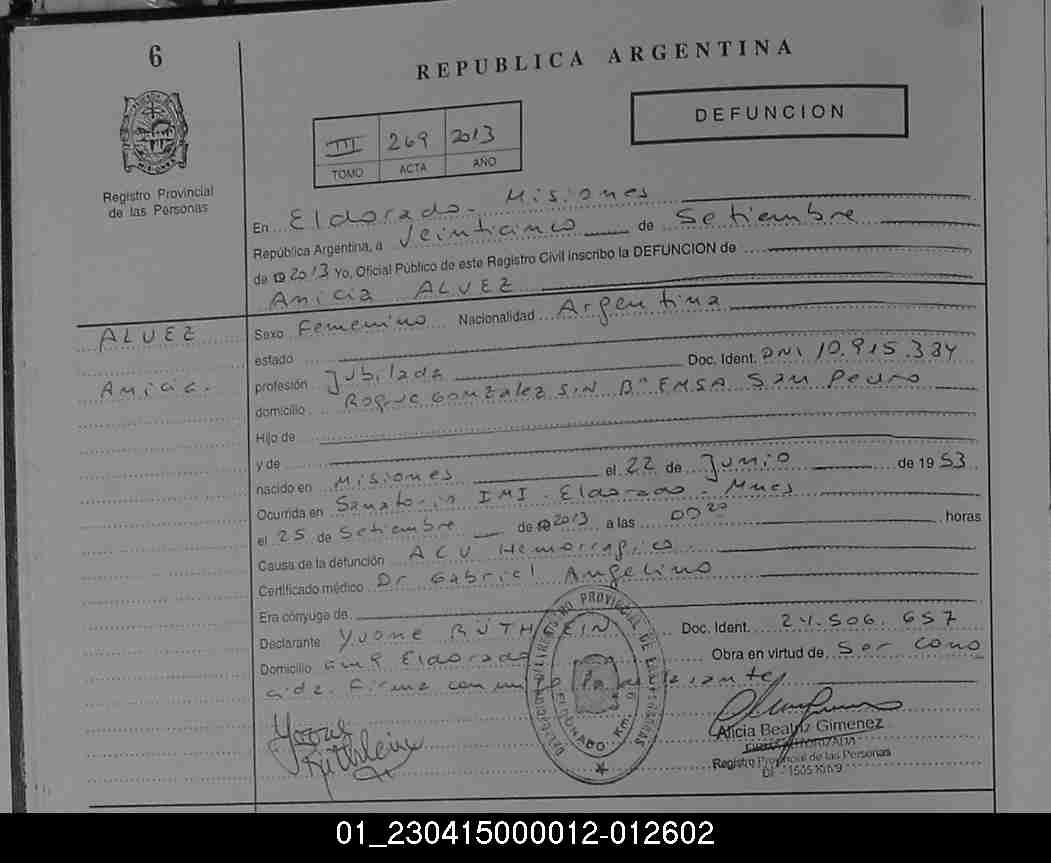 6
REPUBLICA ARGENTINA
DEFUNCION
III 269 2013
TOMO ACTA AÑO
Registro Provincial
de las Personas
En Eldorado - Misiones
República Argentina, a Veinticinco de Setiembre
de 2013 Yo, Oficial Público de este Registro Civil inscribo la DEFUNCION de
Anicia ALVEZ
ALVEZ
Anicia.
Sexo Femenino Nacionalidad Argentina
estado
profesión Jubilada Doc. Ident. DNI 10.915.334
domicilio Roque Gonzalez S/N Bº EMSA San Pedro
Hijo de
y de
nacido en Misiones el 22 de Junio de 1953
Ocurrida en Sanatorio IMI - Eldorado - Mnes
el 25 de Setiembre de 2013 a las 00 20 horas
Causa de la defunción ACV Hemorragico
Certificado médico Dr Gabriel Angelino
Era cónyuge de
Declarante Yvone RUTHLEIN Doc. Ident. 24.506.657
Domicilio Eldorado Obra en virtud de Ser cono
cida. Firma conmigo la declarante
Yvone
Ruthlein
REGISTRO PROVINCIAL DE LAS PERSONAS
ELDORADO Km. 9
Alicia Beatriz Gimenez
FIRMA AUTORIZADA
Registro Provincial de las Personas
01_230415000012-012602